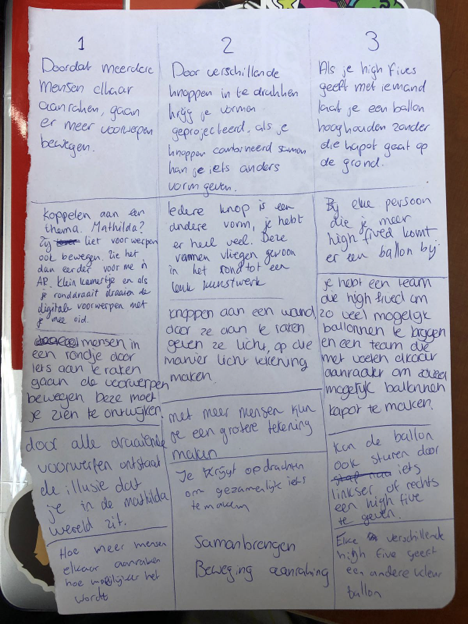 1
Doordat meerdere
mensen elkaar
aanraken, gaan
er meer voorwerpen
bewegen.
koppelen aan een
thema. Mathilda?
Zij liet voorwerpen
ook bewegen. Zie het
dan eerder voor me in
AR. klein kamertje en als
je ronddraait draaien de
digitale voorwerpen met
je mee
mensen in
een rondje door
iets aan te raken
gaan de voorwerpen
bewegen deze moet
je zien te ontwijken
door alle draaiende
voorwerpen ontstaat
de illusie dat
je in de mathilda
wereld zit.
Hoe meer mensen
elkaar aanraken
hoe moeilijker het
wordt
2
Door verschillende
knoppen in te drukken
krijg je vormen
geprojecteerd, als je
knoppen combineerd samen
kan je iets anders
vorm geven.
Iedere knop is een
andere vorm, je hebt
er heel veel. Deze
vormen vliegen gewoon
in het rond tot een
leuk kunstwerk
knoppen aan een wand
door ze aan te raken
geven ze licht, op die
manier licht tekening
maken.
met meer mensen kun
je een grotere tekening
maken
Je krijgt opdrachten
om gezamenlijk iets
te maken
Samenbrengen
Beweging aanraking
3
Als je high fives
geeft met iemand
laat je een ballon
hooghouden zonder
die kapot gaat op
de grond.
Bij elke persoon
die je meer
high fived komt
er een ballon bij
je hebt een team
die high fived om
zo veel mogelijk
ballonnen te krijgen
en een team die
met voelen elkaar
aanraken om zoveel
mogelijk ballonnen
kapot te maken.
Kun de ballon
ook sturen door
iets
linkser of rechts
een high five
te geven.
Elke verschillende
high five geeft
een andere kleur
ballon